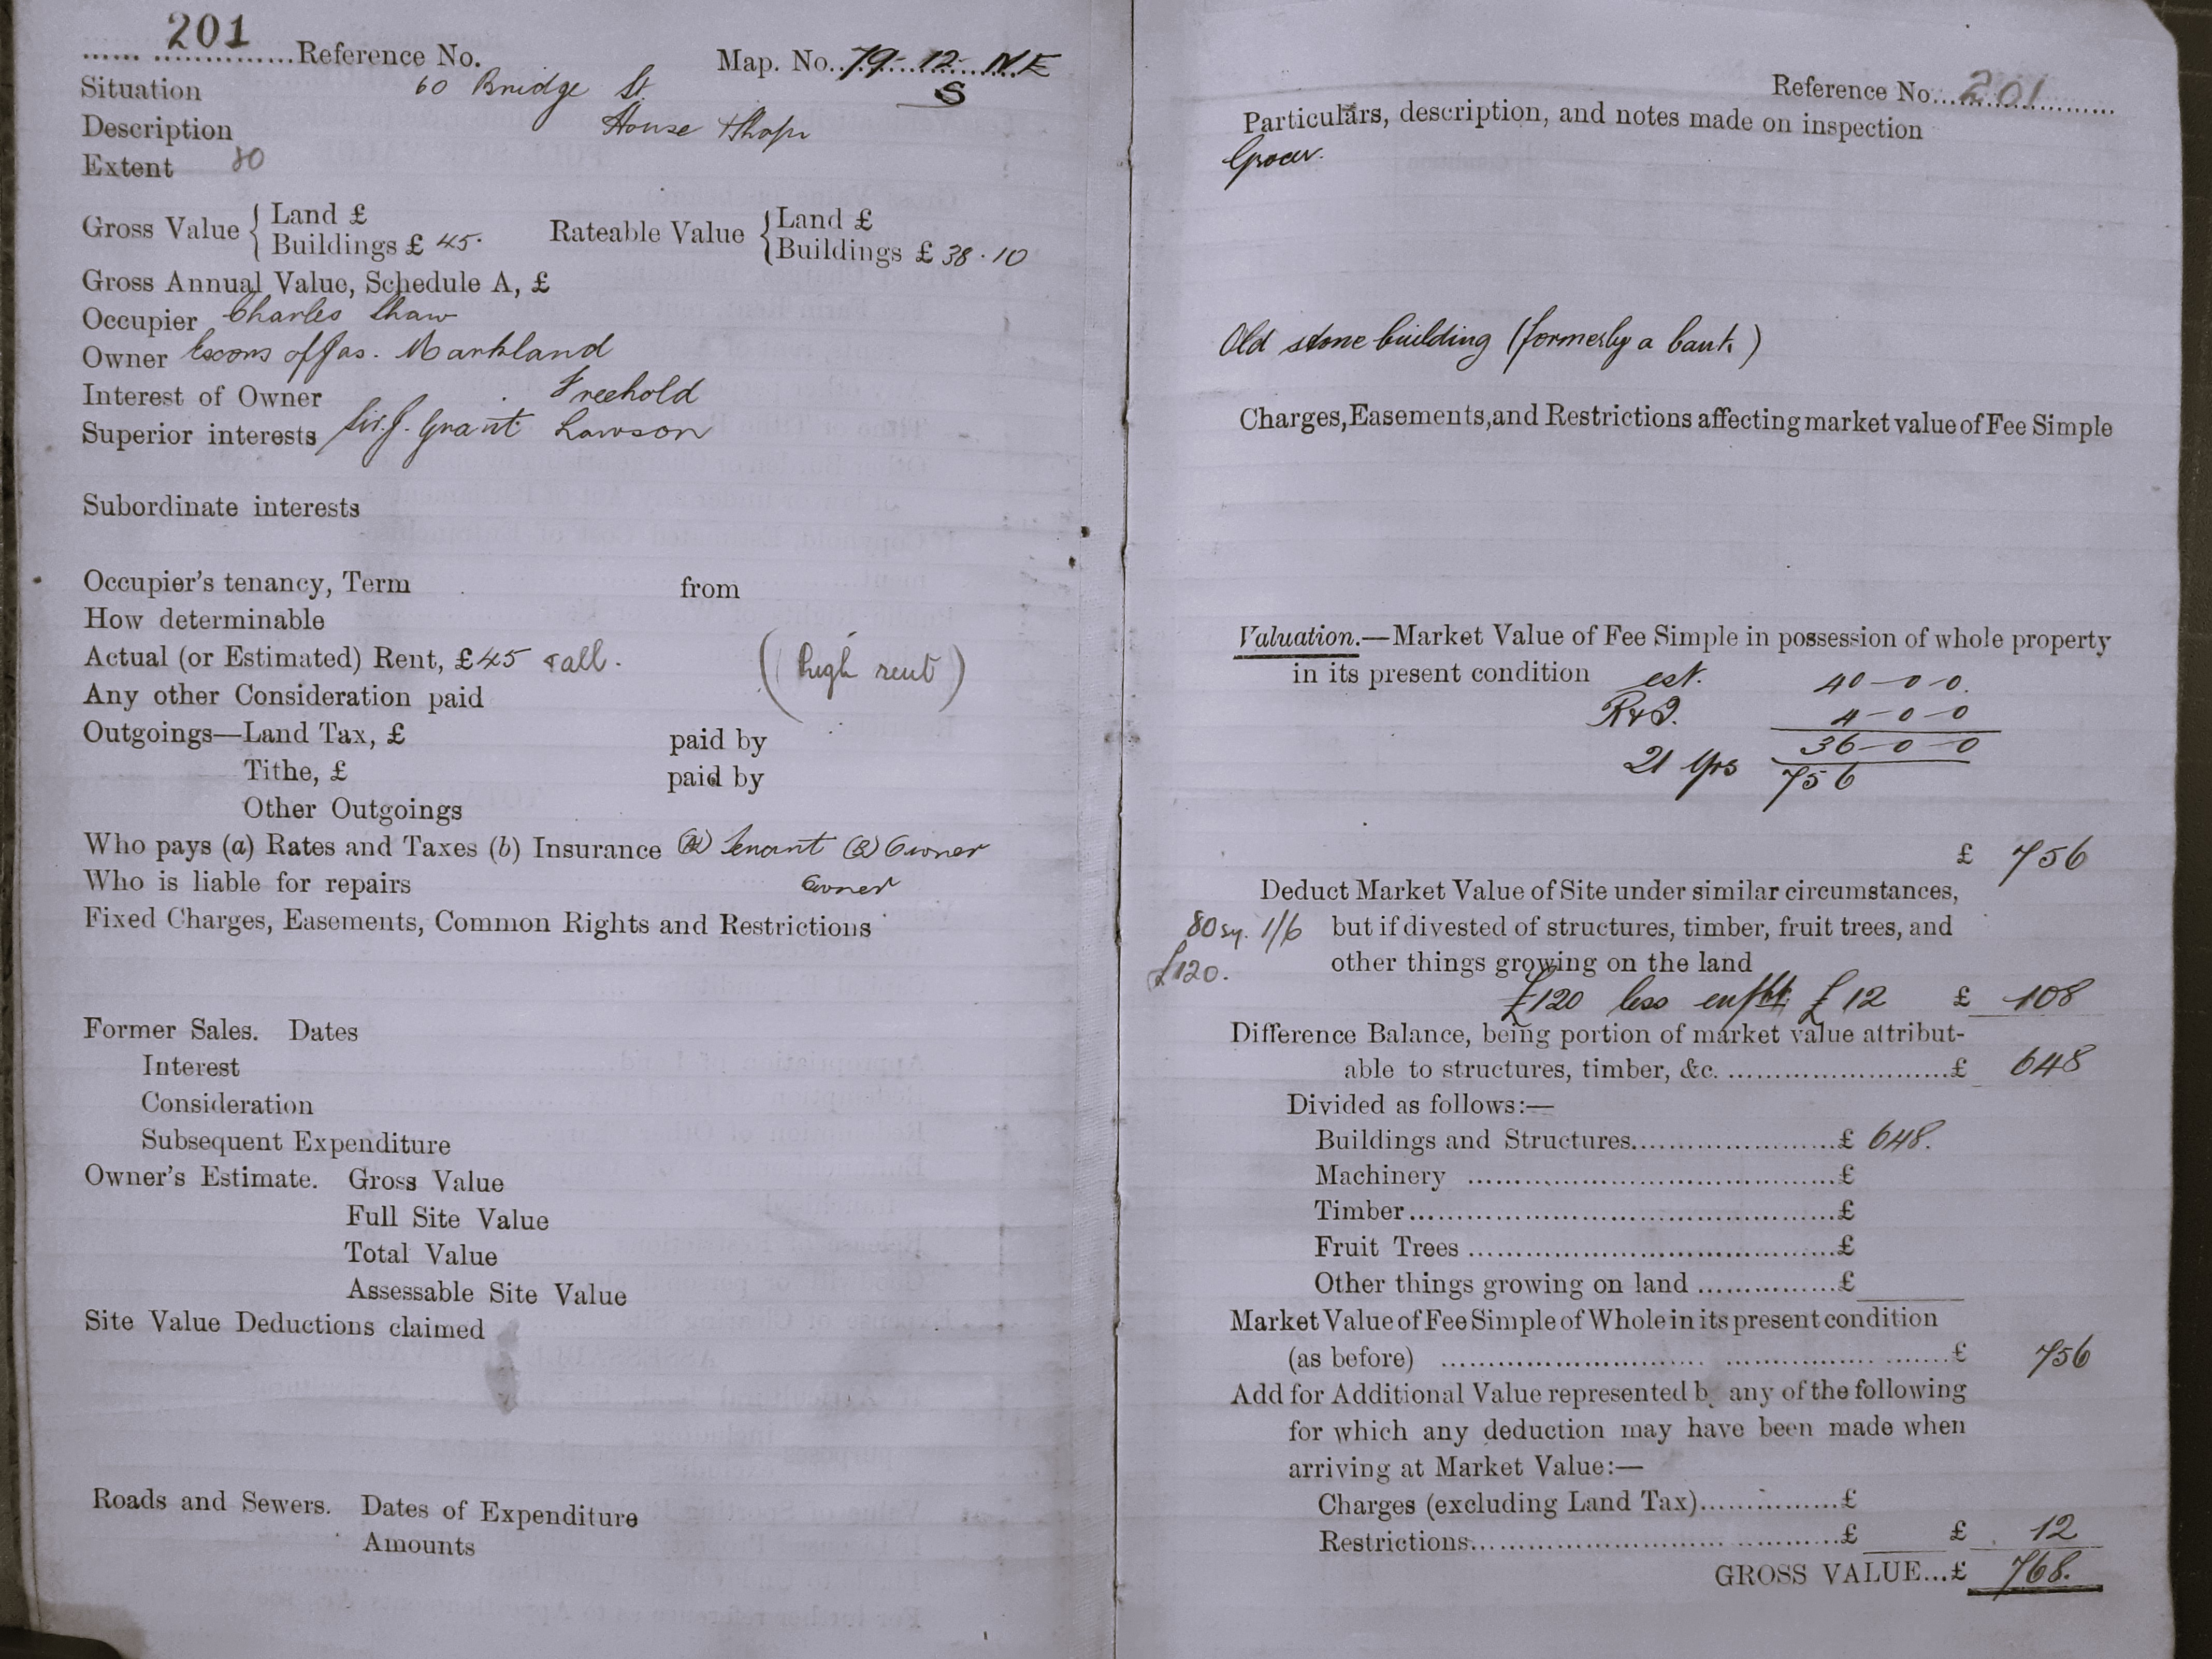 201 Reference No. Map. No. 79-12-NE
S
Situation 60 Bridge St.
Description House & Shop
Extent 80
Gross Value { Land £
Buildings £ 45. Rateable Value { Land £
Buildings £ 38.10
Gross Annual Value, Schedule A, £
Occupier Charles Shaw
Owner Excors of Jas. Markland
Interest of Owner Freehold
Superior interests Sir. J. Grant Lawson
Subordinate interests
Occupier's tenancy, Term from
How determinable
Actual (or Estimated) Rent, £45 (high rent)
Any other Consideration paid
Outgoings—Land Tax, £ paid by
Tithe, £ paid by
Other Outgoings
Who pays (a) Rates and Taxes (b) Insurance (a) Tenant (B) Owner
Who is liable for repairs Owner
Fixed Charges, Easements, Common Rights and Restrictions
Former Sales. Dates
Interest
Consideration
Subsequent Expenditure
Owner's Estimate. Gross Value
Full Site Value
Total Value
Assessable Site Value
Site Value Deductions claimed
Roads and Sewers. Dates of Expenditure
Amounts
Reference No. 201
Particulars, description, and notes made on inspection
Grocer.
Old stone building (formerly a bank)
Charges, Easements, and Restrictions affecting market value of Fee Simple
Valuation.—Market Value of Fee Simple in possession of whole property
in its present condition est. 40-0-0.
R&I. 4-0-0
36-0-0
21 yrs 756
£ 756
Deduct Market Value of Site under similar circumstances,
80 sy. 1/6 but if divested of structures, timber, fruit trees, and
£120. other things growing on the land
£120 less £12 £ 108
Difference Balance, being portion of market value attribut-
able to structures, timber, &c. £ 648
Divided as follows:—
Buildings and Structures £ 648.
Machinery £
Timber £
Fruit Trees £
Other things growing on land £
Market Value of Fee Simple of Whole in its present condition
(as before) £ 756
Add for Additional Value represented b any of the following
for which any deduction may have been made when
arriving at Market Value:—
Charges (excluding Land Tax) £
Restrictions £ £ 12
GROSS VALUE...£ 768.